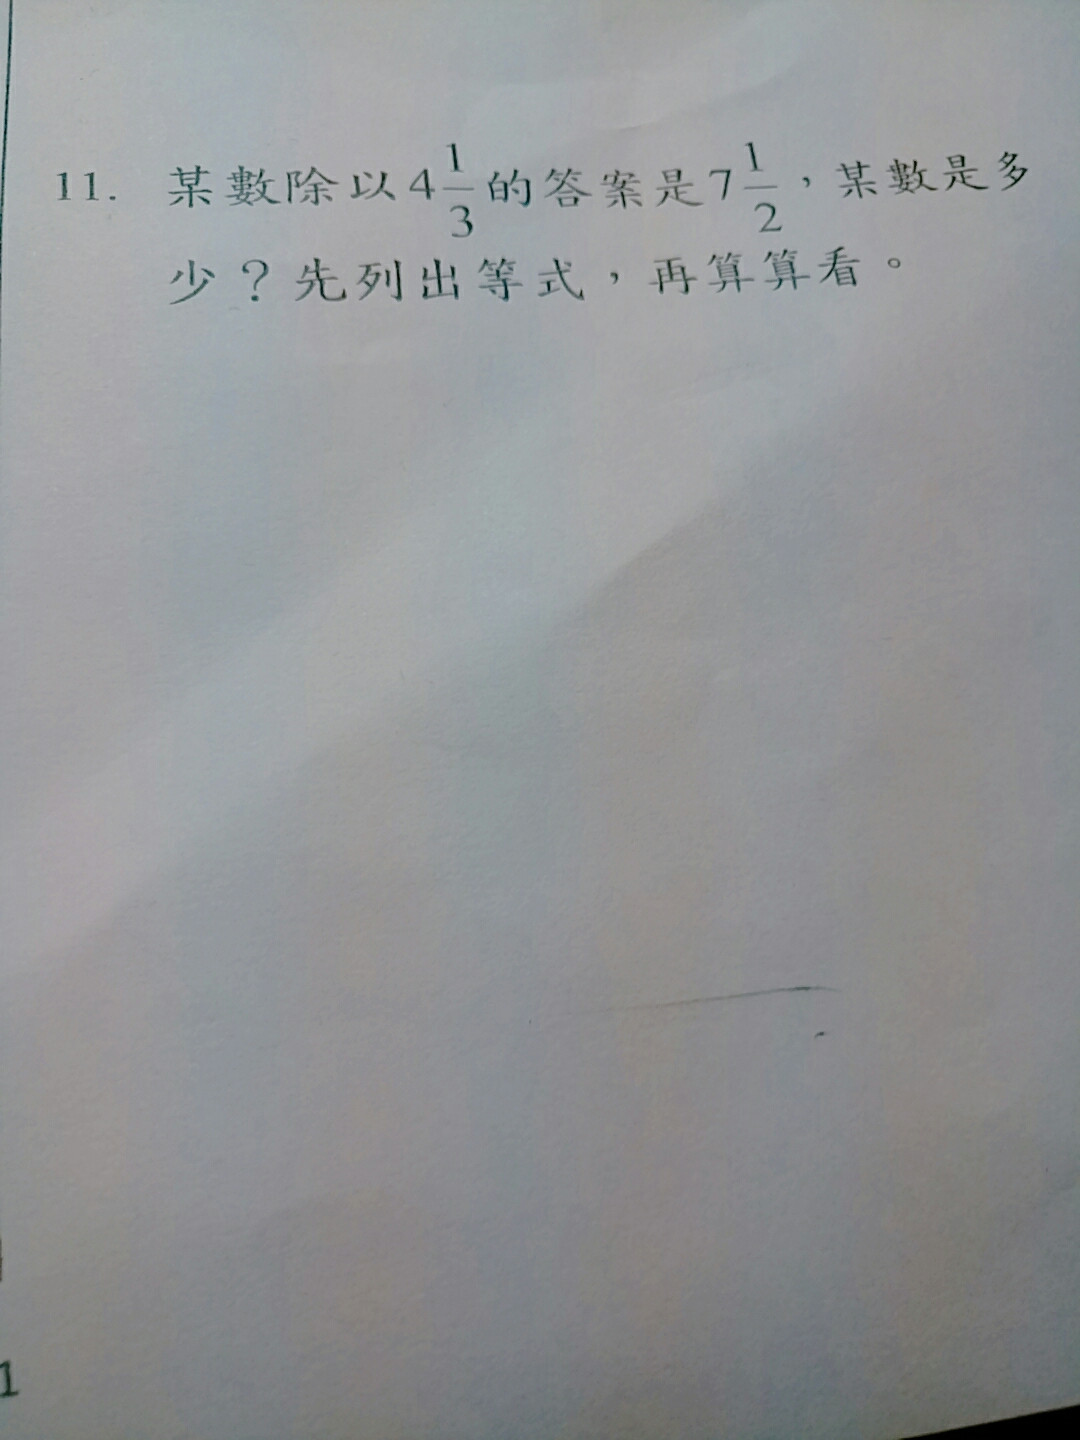 11. 某數除以4 1/3的答案是7 1/2，某數是多
少？先列出等式，再算算看。
1